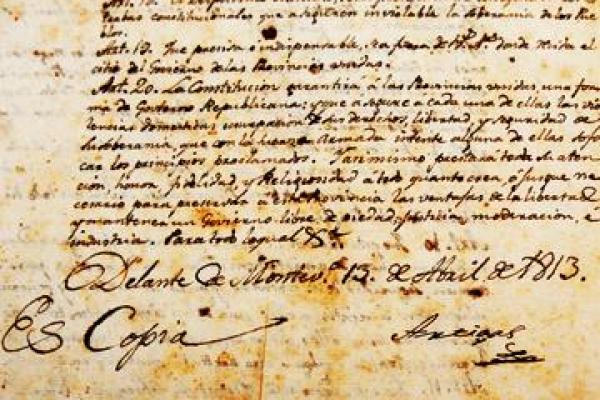 trabas constitucionales que aseguren inviolable la soberania de los Pue
blos.
Art. 19. Que precisa e indispensable, sea fuera de Bs. As. donde resida el
citio del Govierno de las Provincias unidas.
Art. 20. La Constitucion garantirá á las Provincias unidas, una for
ma de Governo Republicana: y que asegure a cada una de ellas las vio
lencias domesticas, usurpacion de sus derechos, libertad, y seguridad de
su soberania, que con la fuerza armada intente alguna de ellas sofo
car los principios proclamados. Y asimismo prestará toda su aten
cion, honor, fidelidad, y Religiosidad á todo quanto crea, ó jusgue ne
cesario para preservar á esta Provincia las ventajas de la libertad
y mantener un Govierno libre, de piedad, justicia, moderacion, é
industria. Para todo lo qual &ta.
Delante de Montevo. 13. de Abril de 1813.
Es Copia
Artigas